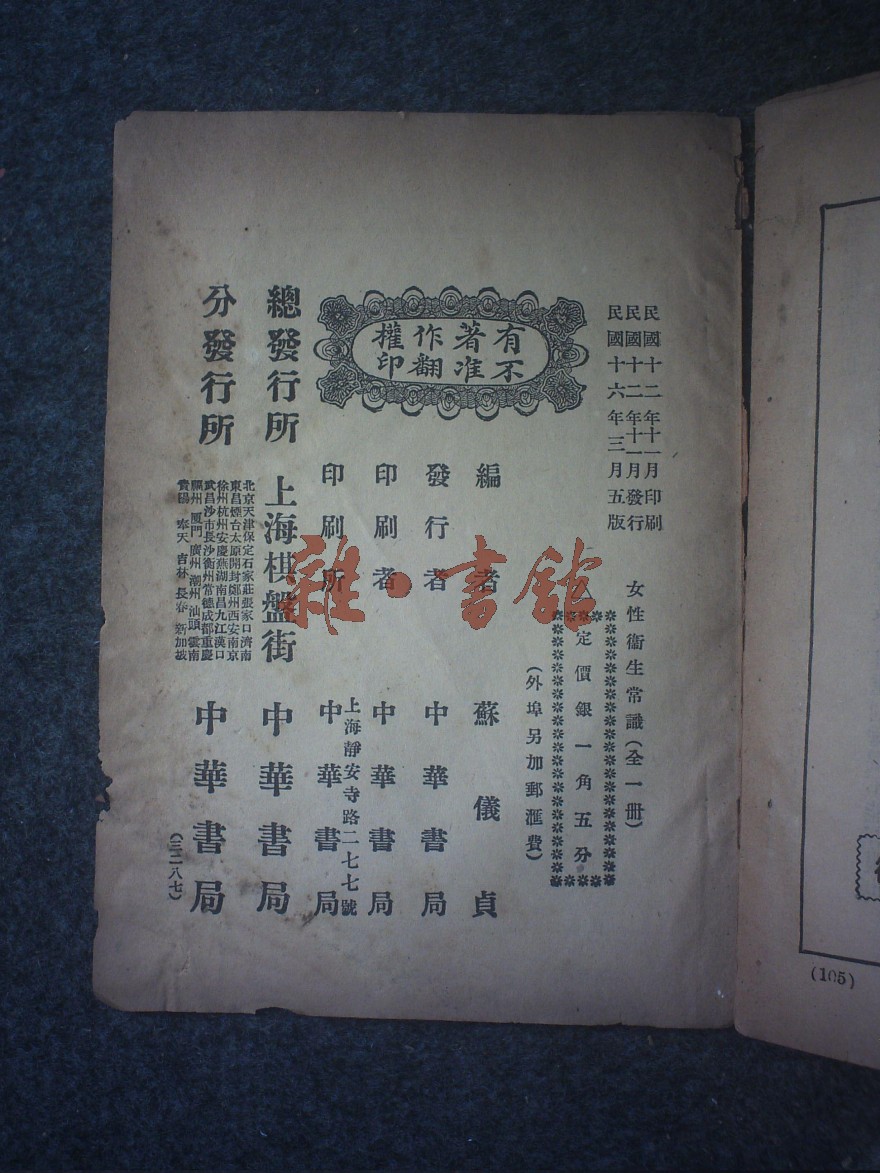 民國十二年十一月印刷
民國十二年十一月發行
民國十六年三月五版
有著作權
不准翻印
女性衞生常識(全一冊)
定價銀一角五分
(外埠另加郵滙費)
編者 蘇儀貞
發行者 中華書局
印刷者 中華書局
上海靜安寺路二七七號
印刷所 中華書局
總發行所 上海棋盤街 中華書局
分發行所
北京天津保定石家莊張家口濟南
東昌煙台太原開封鄭州西安南京
徐州杭州安慶蕪湖南昌九江漢口
武昌沙市長沙衡州常德成都重慶
福州廈門廣州潮州汕頭雲南
貴陽奉天吉林長春新加坡
中華書局
(三二八七)
雜·書館
(105)